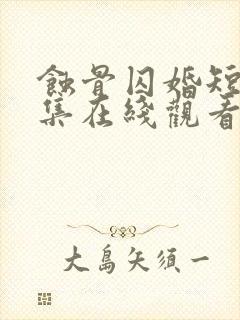 蝕骨囚婚短
集在綫觀看
大島矢須一